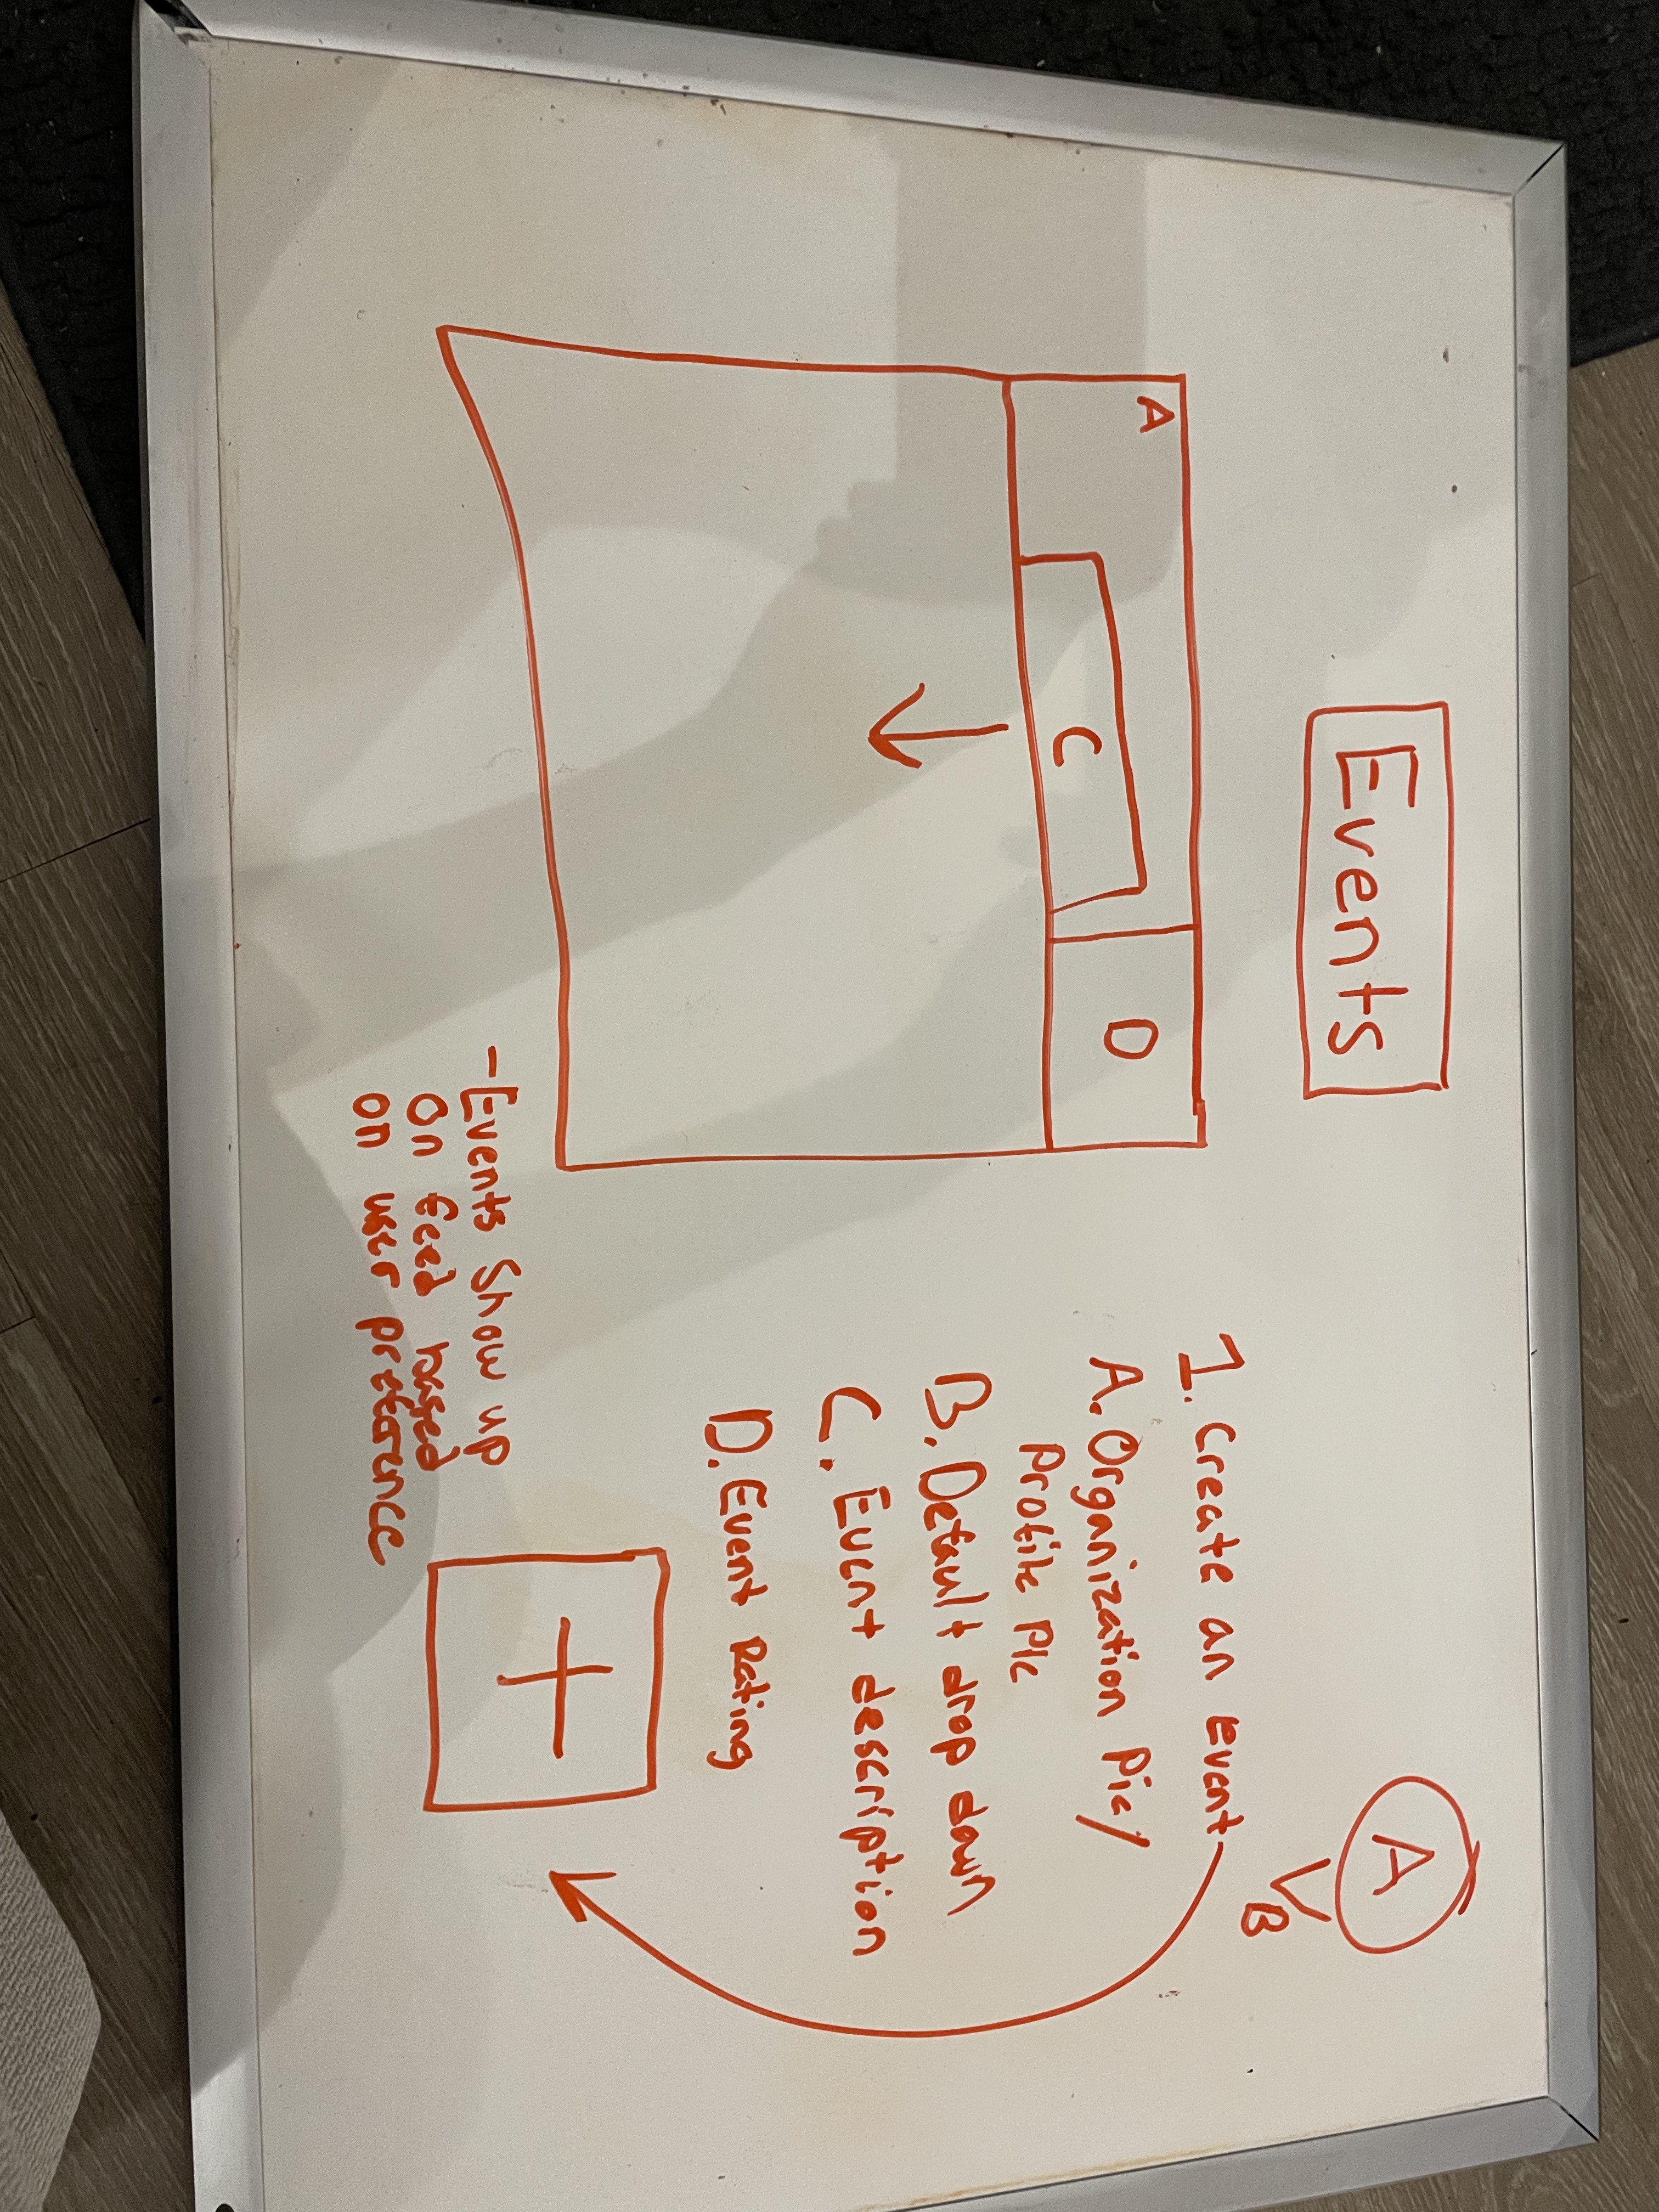 Events
A
B
A
C
D
1. Create an event
A. Organization Pic/
Profile Pic
B. Default drop down
C. Event description
D. Event Rating
- Events Show up
On feed based
on user preference